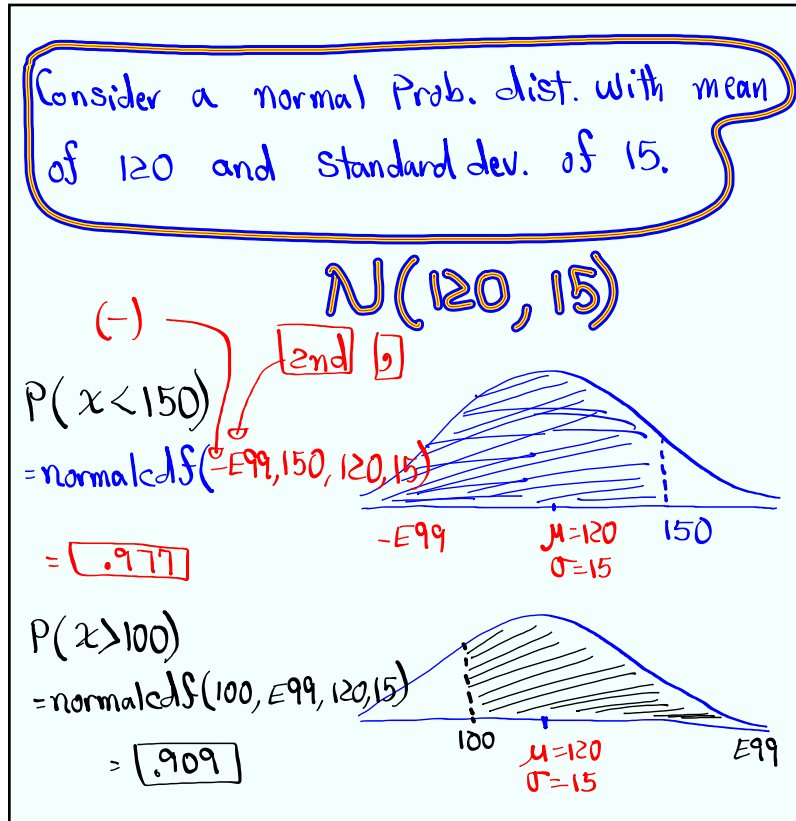 Consider a normal Prob. dist. with mean
of 120 and standard dev. of 15.
N(120, 15)
(-)
2nd ,
P(x<150)
=normalcdf(-E99,150,120,15)
-E99 μ=120 150
σ=15
= .977
P(x>100)
=normalcdf(100, E99, 120,15)
= .909
100 μ=120 E99
σ=15